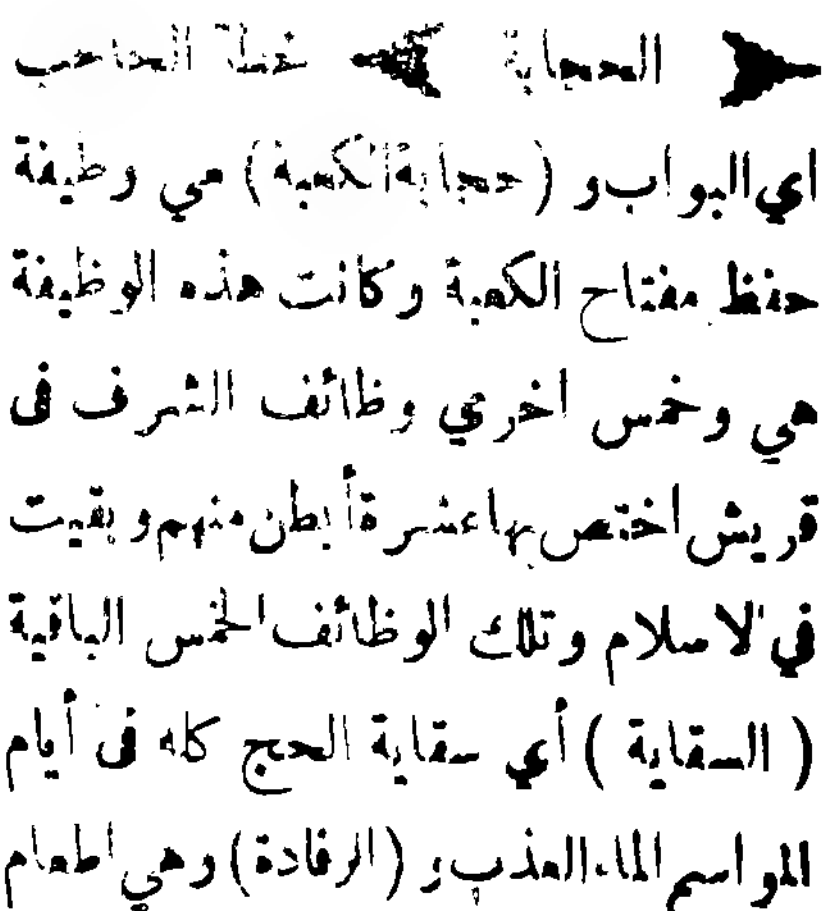 الحجابة خطة الحاجب
اي البواب و (حجابة الكعبة) هي وظيفة
حفظ مفتاح الكعبة وكانت هذه الوظيفة
هي وخمس اخري وظائف الشرف فى
قريش اختص بها عشرة أبطن منهم و بقيت
في الاسلام وتلك الوظائف الخمس الباقية
( السقاية ) أي سقاية الحج كله فى أيام
المواسم الماء العذب و (الرفادة) وهي اطعام